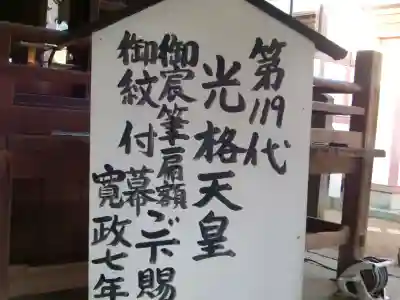 第119代
光格天皇
御宸筆扁額
御紋付幕ご下賜
寛政七年